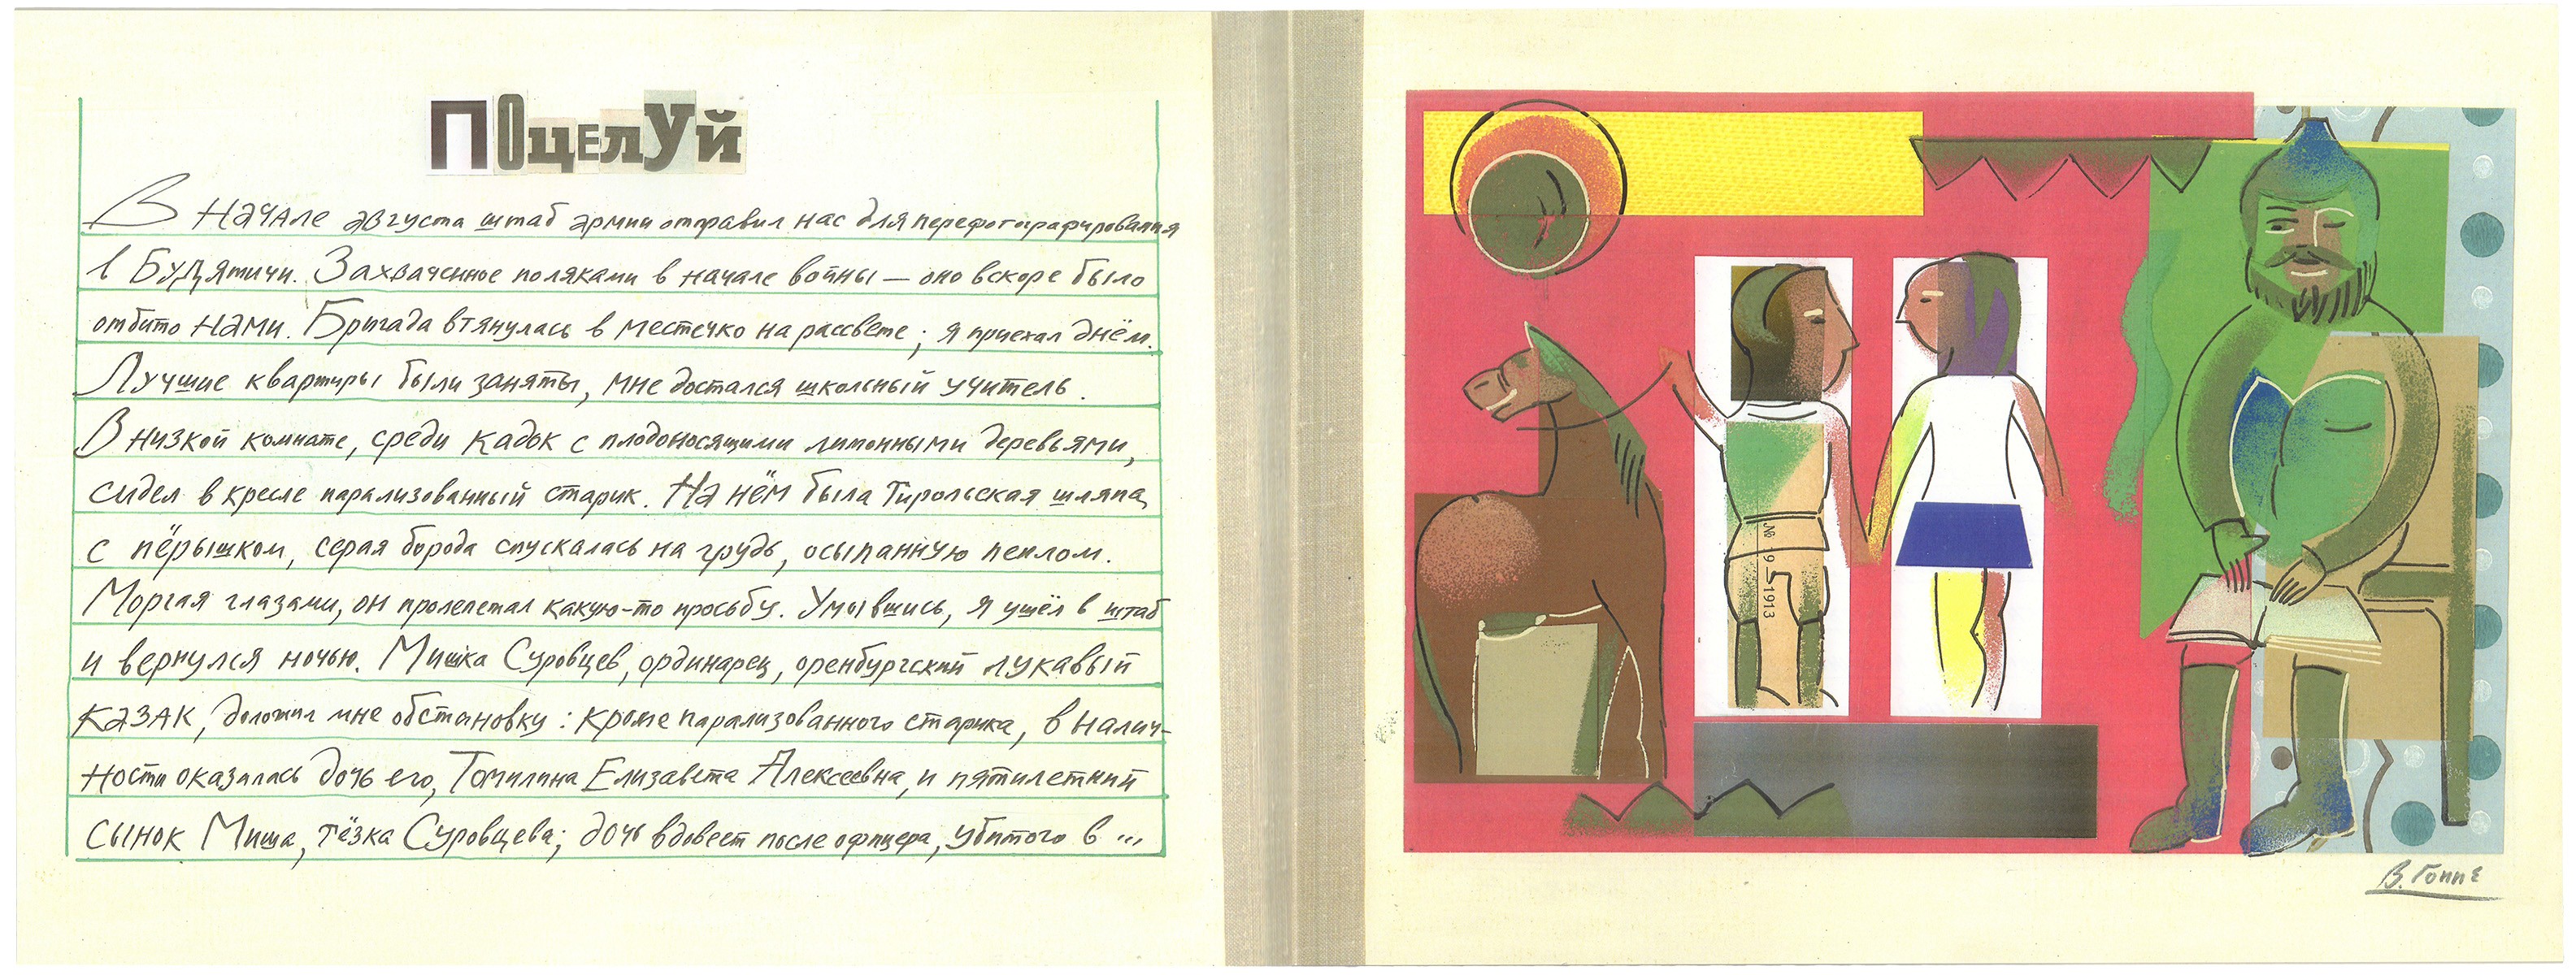 Поцелуй
В начале августа штаб армии отправил нас для перефотографирования
в Будятичи. Захваченное поляками в начале войны — оно вскоре было
отбито нами. Бригада втянулась в местечко на рассвете; я приехал днём.
Лучшие квартиры были заняты, мне достался школьный учитель.
В низкой комнате, среди кадок с плодоносящими лимонными деревьями,
сидел в кресле парализованный старик. На нём была тирольская шляпа
с пёрышком, серая борода спускалась на грудь, осыпанную пеплом.
Моргая глазами, он пролепетал какую-то просьбу. Умывшись, я ушёл в штаб
и вернулся ночью. Мишка Суровцев, ординарец, оренбургский лукавый
казак, доложил мне обстановку: кроме парализованного старика, в налич-
ности оказалась дочь его, Томилина Елизавета Алексеевна, и пятилетний
сынок Миша, тёзка Суровцева; дочь вдовеет после офицера, убитого в ...
№ 19 — 1913
В. Гоппе